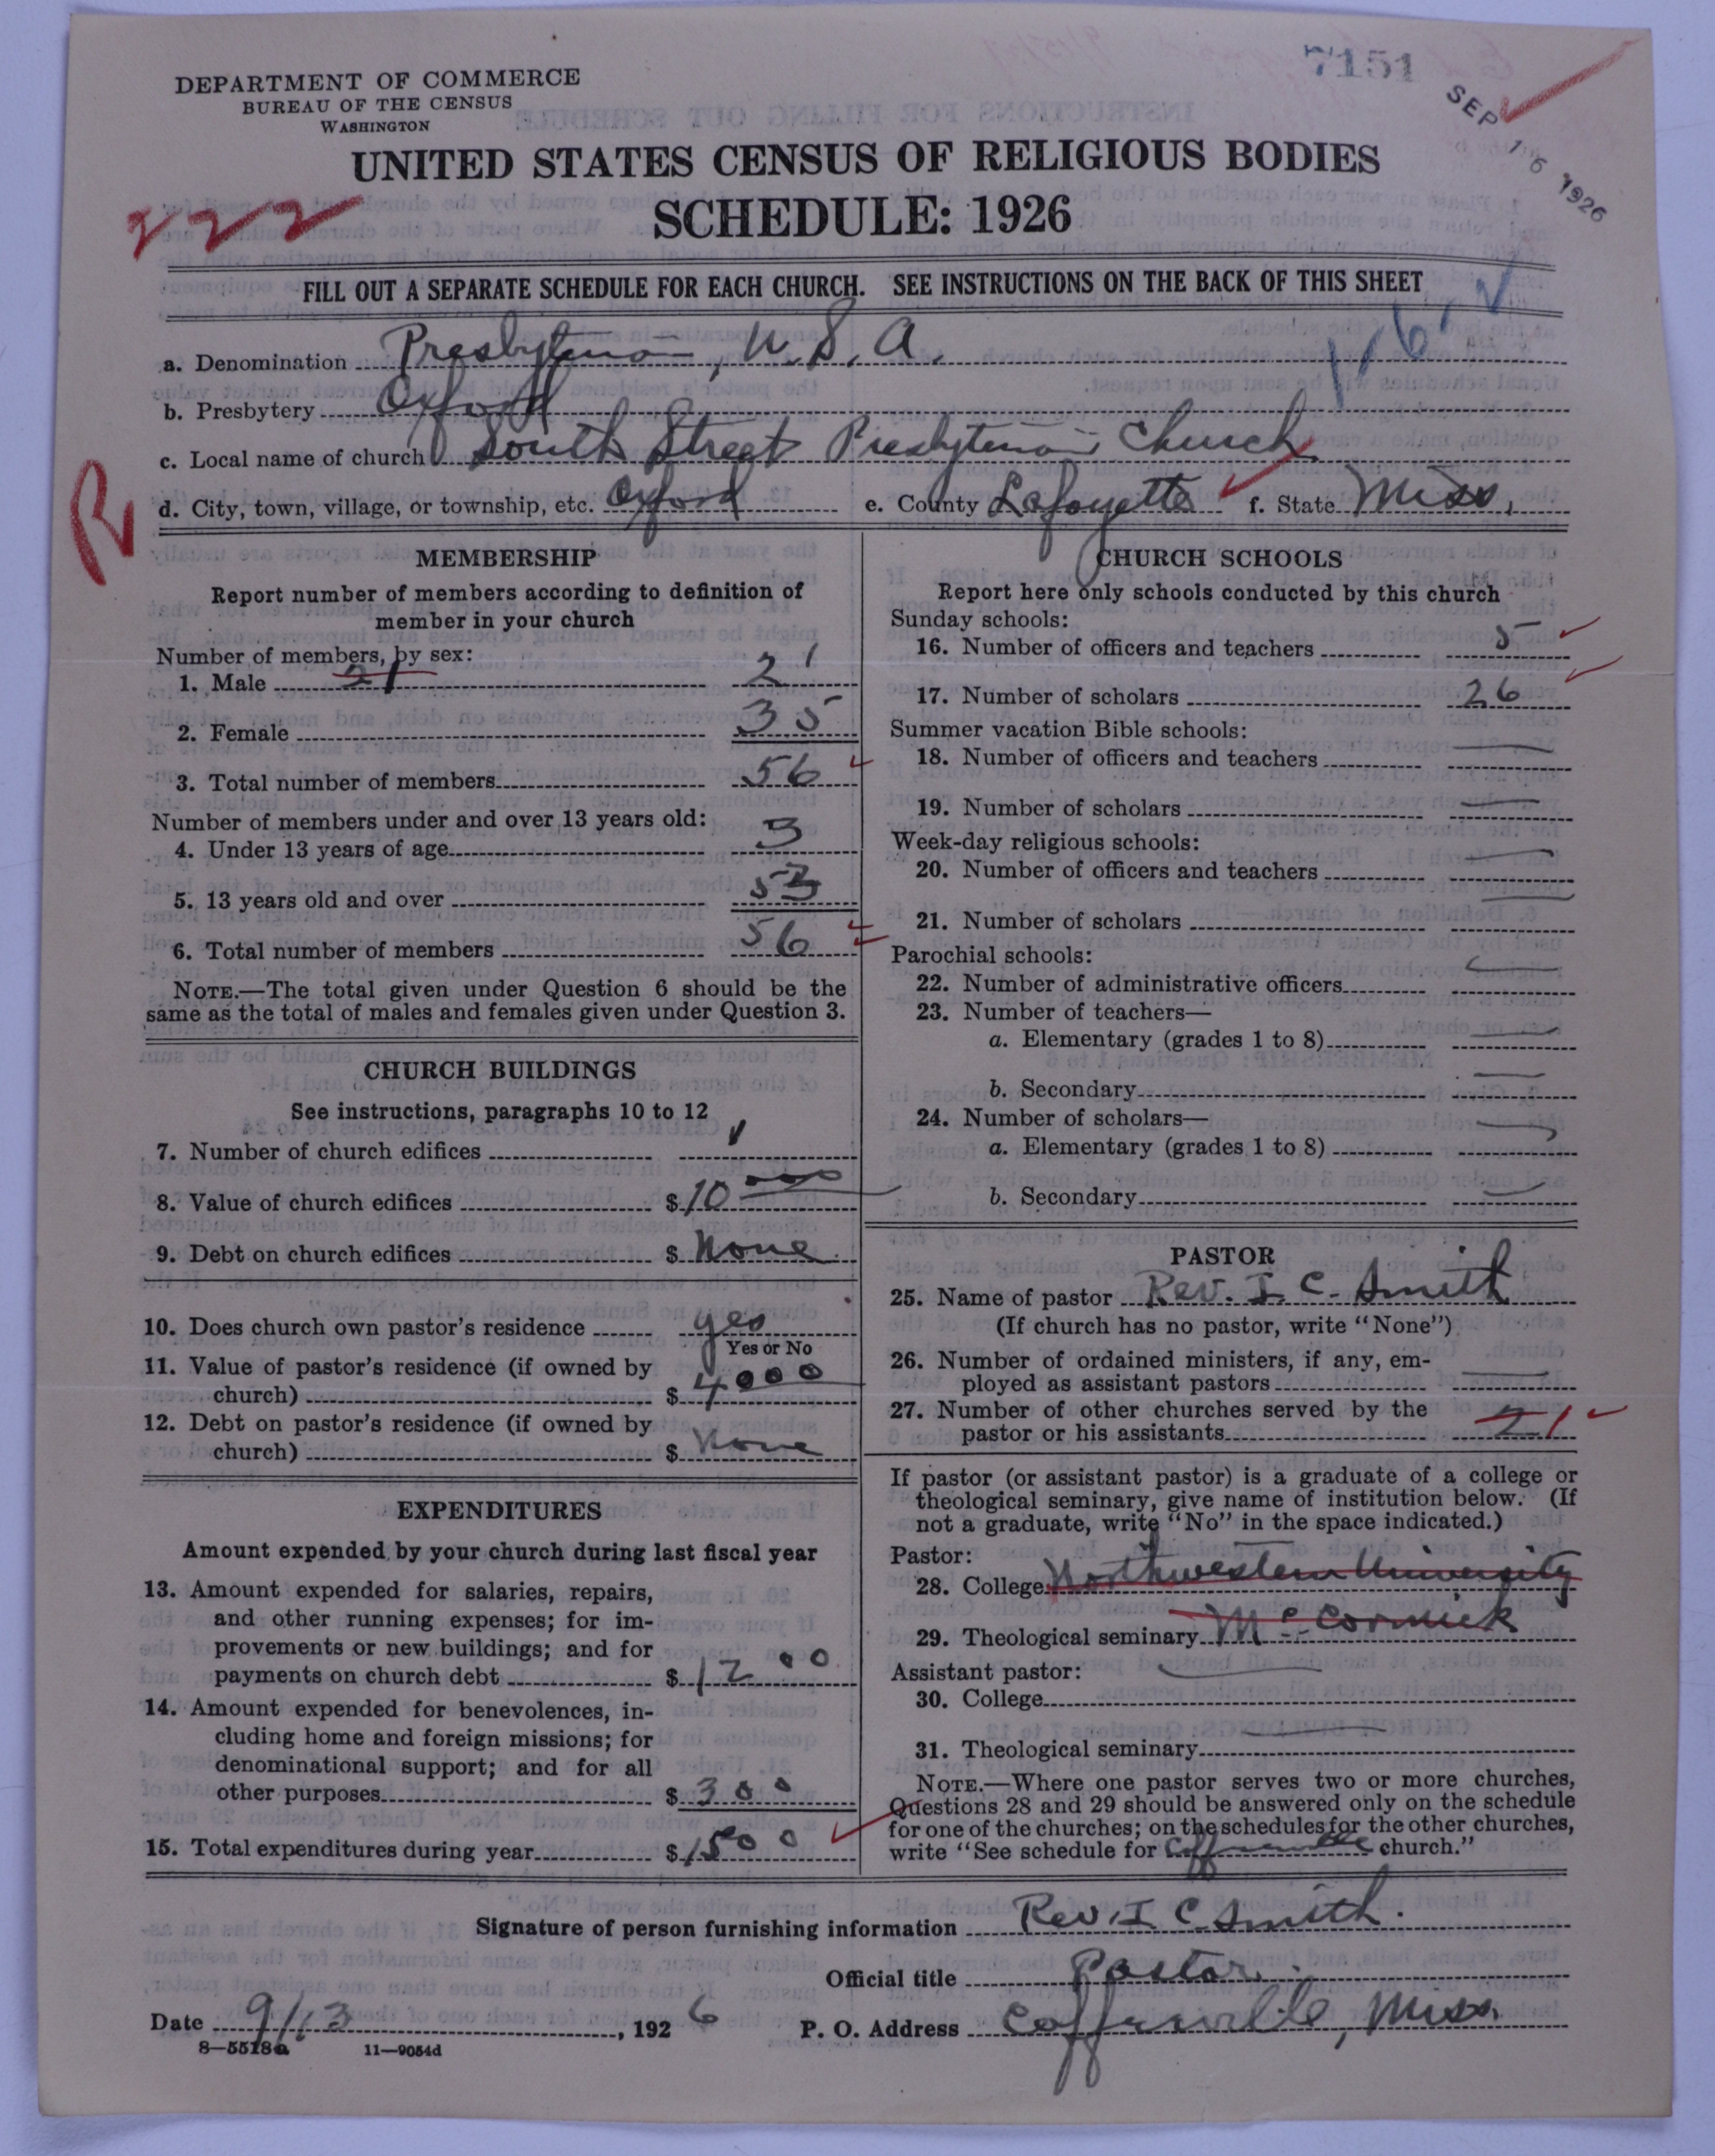 7151
SEP 16 1926
DEPARTMENT OF COMMERCE
BUREAU OF THE CENSUS
WASHINGTON
UNITED STATES CENSUS OF RELIGIOUS BODIES
SCHEDULE: 1926
222
FILL OUT A SEPARATE SCHEDULE FOR EACH CHURCH. SEE INSTRUCTIONS ON THE BACK OF THIS SHEET
a. Denomination Presbyterian, U.S.A.
b. Presbytery Oxford
c. Local name of church South Street Presbyterian Church
d. City, town, village, or township, etc. Oxford e. County Lafayette f. State Miss.
R
MEMBERSHIP
Report number of members according to definition of
member in your church
Number of members, by sex:
1. Male 21 21
2. Female 35
3. Total number of members 56
Number of members under and over 13 years old:
4. Under 13 years of age 3
5. 13 years old and over 53
6. Total number of members 56
NOTE.—The total given under Question 6 should be the
same as the total of males and females given under Question 3.
CHURCH BUILDINGS
See instructions, paragraphs 10 to 12
7. Number of church edifices 1
8. Value of church edifices $10000
9. Debt on church edifices $ None
10. Does church own pastor's residence yes
Yes or No
11. Value of pastor's residence (if owned by
church) $ 4000
12. Debt on pastor's residence (if owned by
church) $ None
EXPENDITURES
Amount expended by your church during last fiscal year
13. Amount expended for salaries, repairs,
and other running expenses; for im-
provements or new buildings; and for
payments on church debt $ 1200
14. Amount expended for benevolences, in-
cluding home and foreign missions; for
denominational support; and for all
other purposes $ 300
15. Total expenditures during year $ 1500
CHURCH SCHOOLS
Report here only schools conducted by this church
Sunday schools:
16. Number of officers and teachers 5
17. Number of scholars 26
Summer vacation Bible schools:
18. Number of officers and teachers
19. Number of scholars
Week-day religious schools:
20. Number of officers and teachers
21. Number of scholars
Parochial schools:
22. Number of administrative officers
23. Number of teachers—
a. Elementary (grades 1 to 8)
b. Secondary
24. Number of scholars—
a. Elementary (grades 1 to 8)
b. Secondary
PASTOR
25. Name of pastor Rev. I. C. Smith
(If church has no pastor, write "None")
26. Number of ordained ministers, if any, em-
ployed as assistant pastors
27. Number of other churches served by the
pastor or his assistants 2 1
If pastor (or assistant pastor) is a graduate of a college or
theological seminary, give name of institution below. (If
not a graduate, write "No" in the space indicated.)
Pastor:
28. College Northwestern University
29. Theological seminary McCormick
Assistant pastor:
30. College
31. Theological seminary
NOTE.—Where one pastor serves two or more churches,
Questions 28 and 29 should be answered only on the schedule
for one of the churches; on the schedules for the other churches,
write "See schedule for Coffeeville church."
Signature of person furnishing information Rev. I C Smith.
Official title Pastor.
Date 9/13, 1926 P. O. Address Coffeeville, Miss.
8—5518a 11—9054d